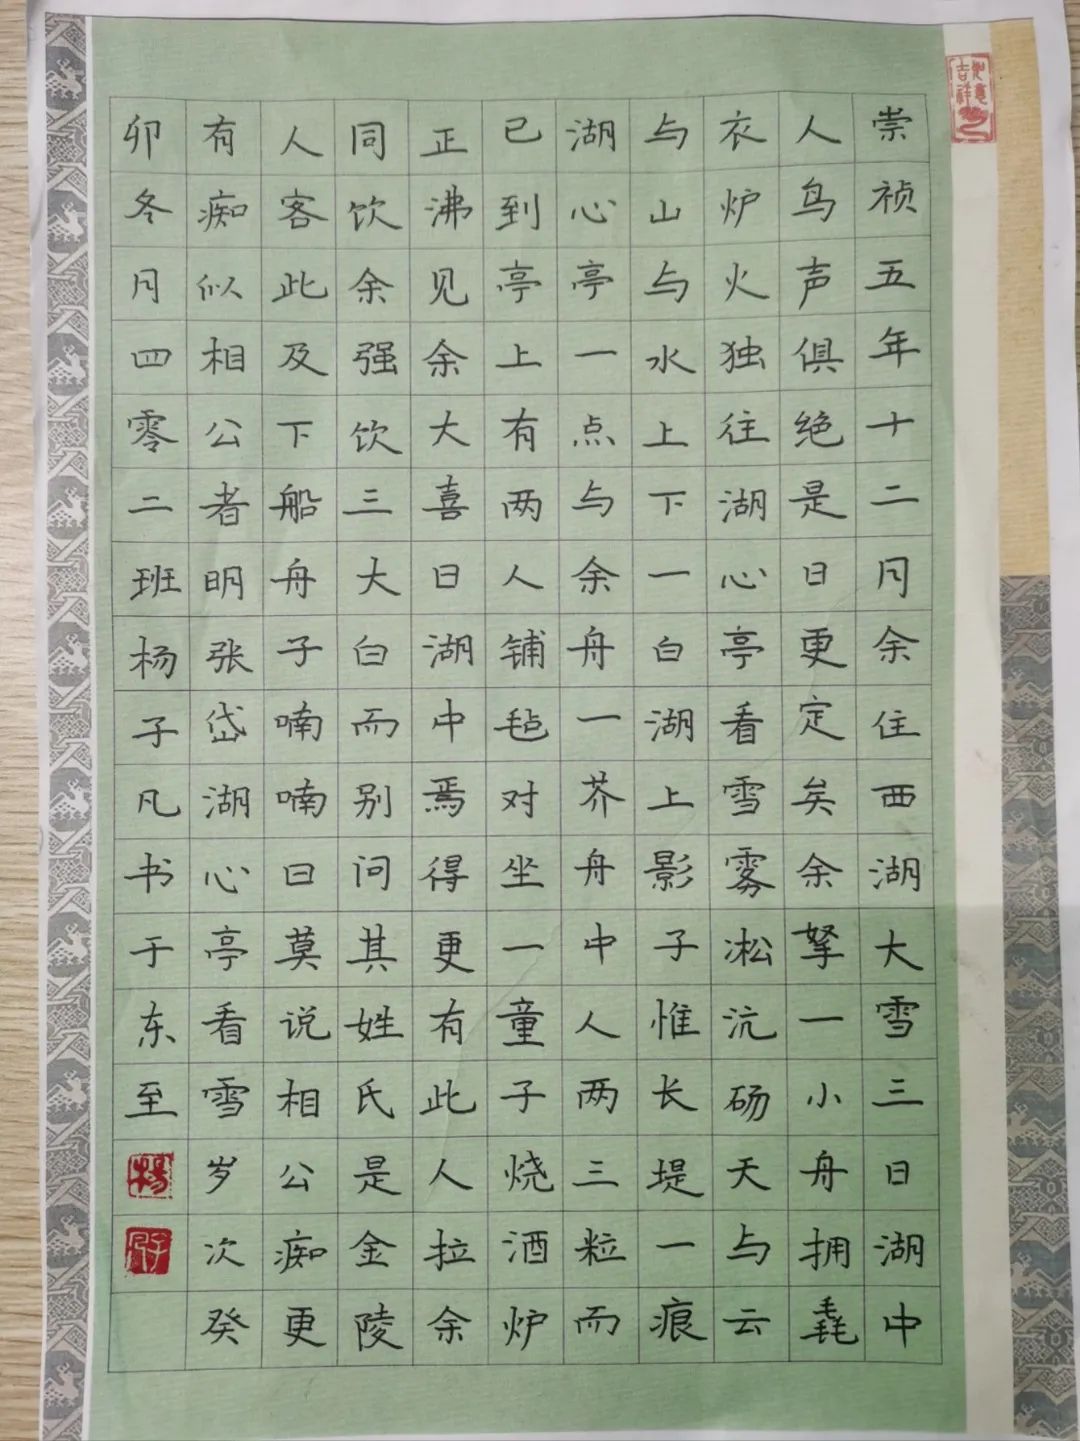 崇祯五年十二月余住西湖大雪三日湖中
人鸟声俱绝是日更定矣余拏一小舟拥毳
衣炉火独往湖心亭看雪雾凇沆砀天与云
与山与水上下一白湖上影子惟长堤一痕
湖心亭一点与余舟一芥舟中人两三粒而
已到亭上有两人铺毡对坐一童子烧酒炉
正沸见余大喜日湖中焉得更有此人拉余
同饮余强饮三大白而别问其姓氏是金陵
人客此及下船舟子喃喃曰莫说相公痴更
有痴似相公者明张岱湖心亭看雪岁次癸
卯冬月四零二班杨子凡书于东至
杨